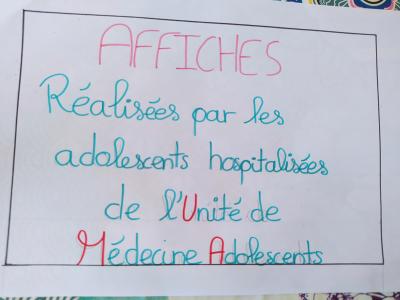 AFFICHES
Réalisées par les
adolescents hospitalisées
de l'Unité de
Médecine Adolescents